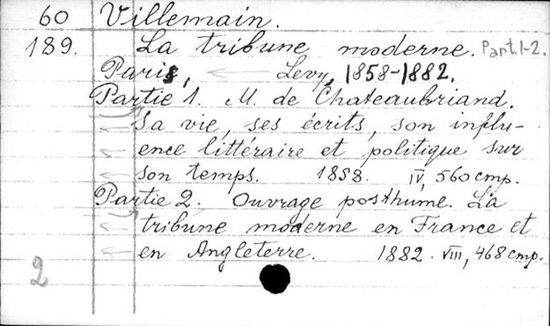 60 Villemain.
189. La tribune moderne. Part. 1-2.
Paris, Levy, 1858-1882.
Partie 1. M. de Chateaubriand.
Sa vie, ses écrits, son influ-
ence littéraire et politique sur
son temps. 1858. IV, 560 стр.
Partie 2. Ouvrage posthume. La
tribune moderne en France et
en Angleterre. 1882. VIII, 468 стр.
2